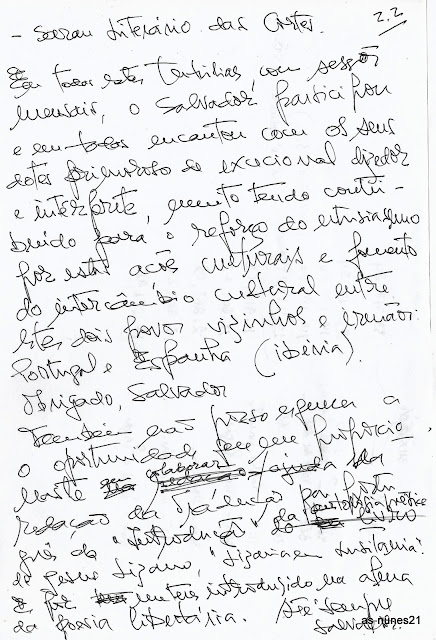 - Serau Literário das Cortes.
2.2
Em todas estas Tertúlias, com sessões
mensais, o Salvador participou
e em todas encantou com os seus
dotes primorosos de excecional dizedor
e intérprete, muito tendo contri-
buído para o reforço do entusiasmo
por estas ações culturais e fomento
do intercâmbio cultural entre
estes dois povos vizinhos e irmãos:
Portugal e Espanha (ibéria).
Obrigado, Salvador
Também não posso esquecer a
a oportunidade que me proporcionou
neste colaborar ajuda da
redação da versão para portu-
guês da "Introdução" da
de Jesus Lizano, "Lizania em Lusitania"
E por me teres introduzido na alma
da poesia libertária. Até sempre
Salvador.
as-nunes21